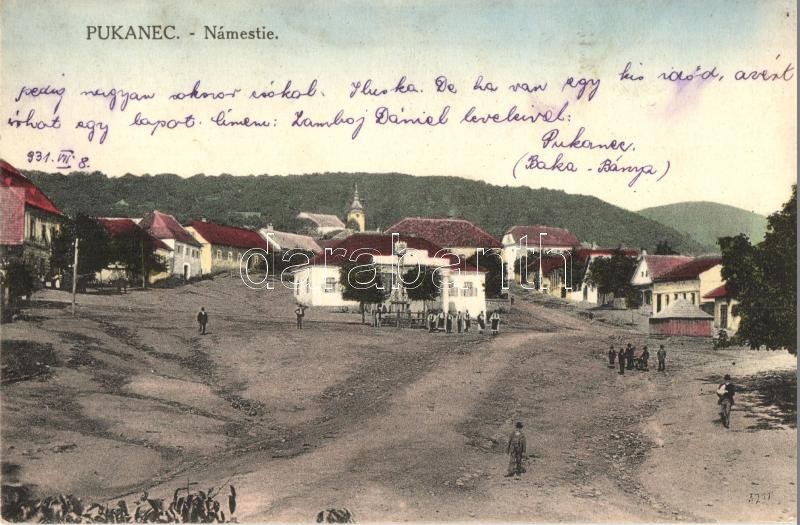 PUKANEC. - Námestie.
pedig nagyan sokszor csókol. Iluska. De ha van egy kis időd, azért
írhat egy lapot. címem: Zamboj Dániel leveleivel:
Pukanec.
(Baka - Bánya)
931. VII. 8.
darabanth
3251